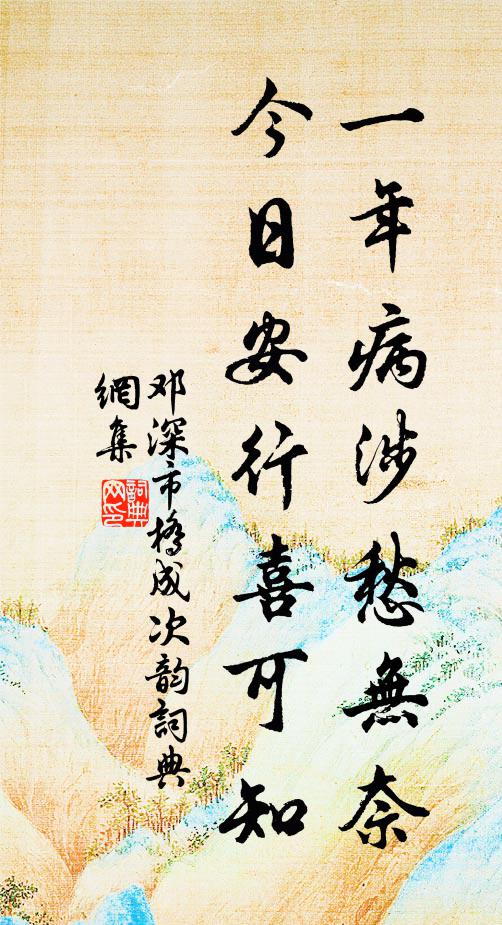 一年病涉愁無奈
今日安行喜可知
邓深市橋成次韵詞典
網集
詞典
网印